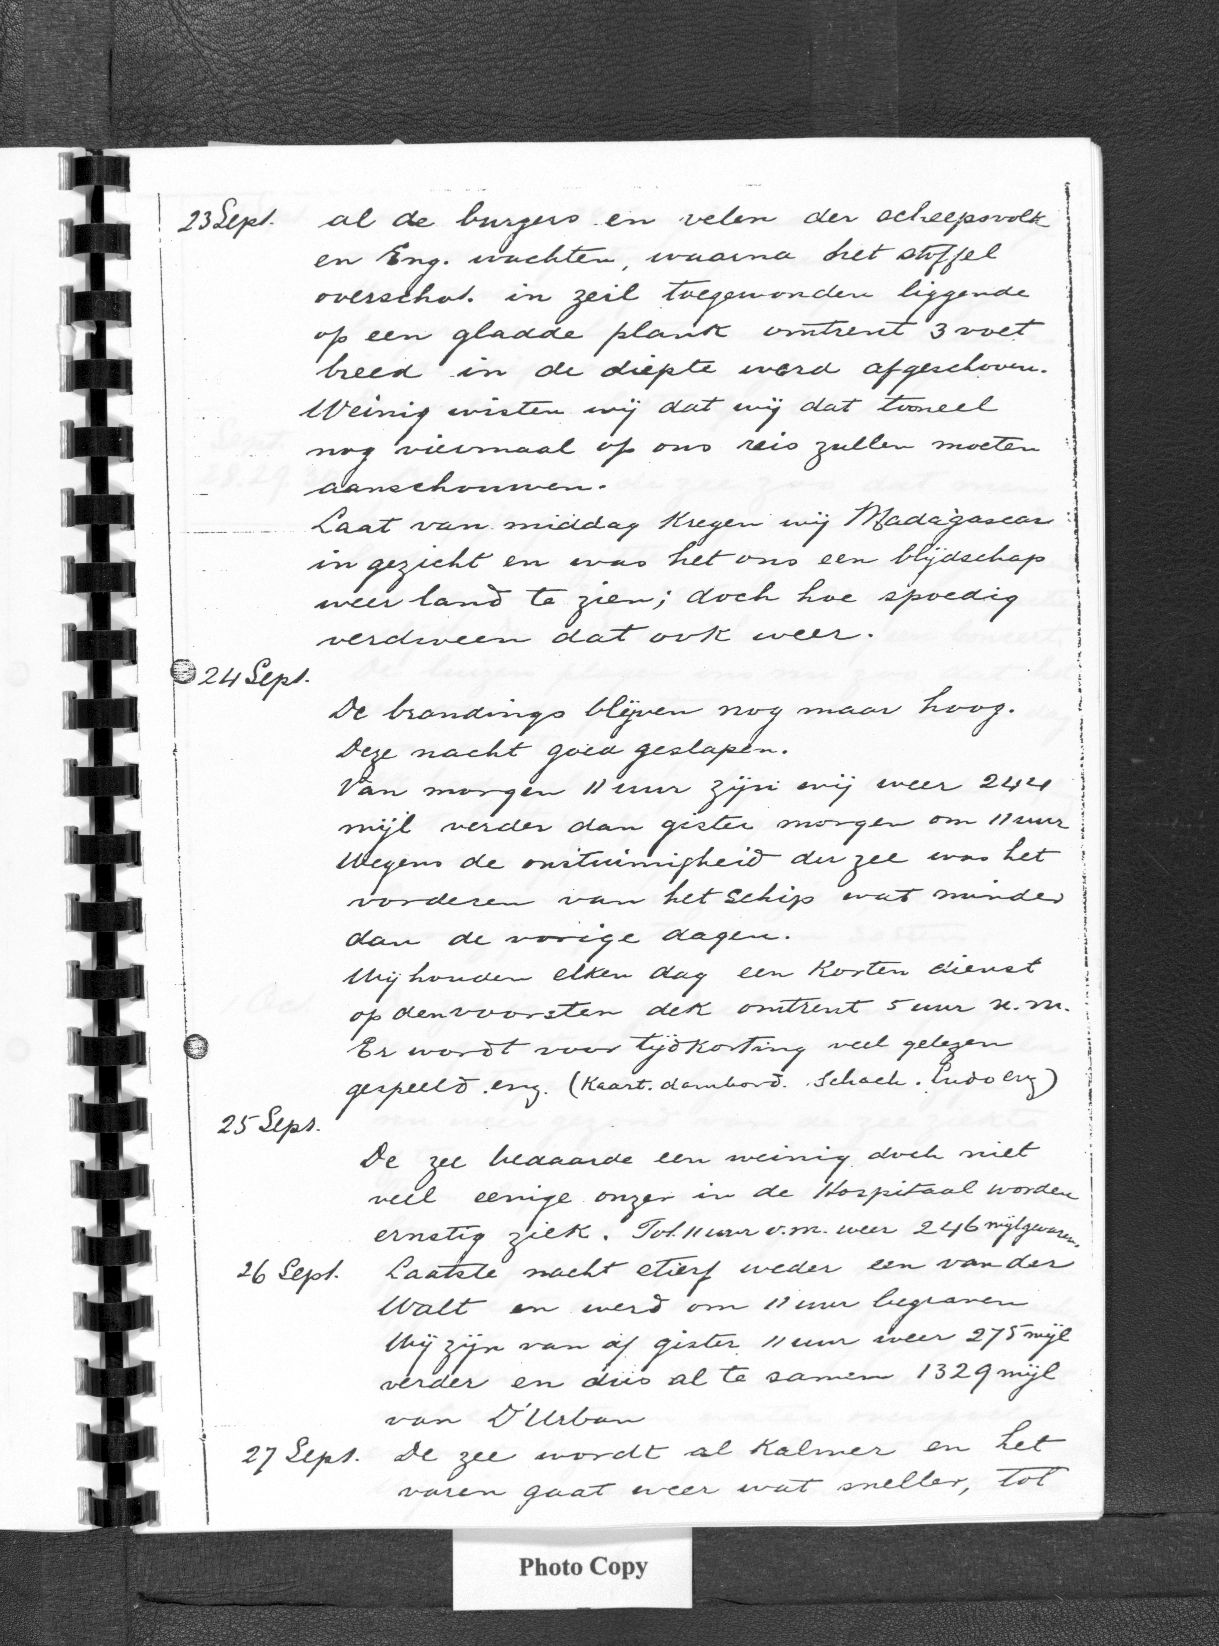 23 Sept. al de burgers en velen der scheepsvolk
en Eng. wachten, waarna het stoffel
overschot. in zeil toegewonden liggende
op een gladde plank omtrent 3 voet
breed in de diepte werd afgeschoven.
Weinig wisten wij dat wij dat toneel
nog viermaal op ons reis zullen moeten
aanschouwen.
Laat van middag kregen wij Madagascar
in gezicht en was het ons een blijdschap
weer land te zien; doch hoe spoedig
verdween dat ook weer.
24 Sept.
De brandings blijven nog maar hoog.
Deze nacht goed geslapen.
Van morgen 11 uur zijn wij weer 244
mijl verder dan gister morgen om 11 uur
Wegens de onstuimigheid der zee was het
vorderen van het schip wat minder
dan de vorige dagen.
Wij houden elken dag een korten dienst
op den voorsten dek omtrent 5 uur n.m.
Er wordt voor tijdkorting veel gelezen
gespeeld enz. (Kaart. dambord. Schach. Ludo enz)
25 Sept.
De zee bedaarde een weinig doch niet
veel eenige onzer in de Hospitaal worden
ernstig ziek. Tot 11 uur v.m. weer 246 mijl gevaren.
26 Sept. Laatste nacht stierf weder een van der
Walt en werd om 11 uur begraven
Wij zijn van af gister 11 uur weer 275 mijl
verder en dus al te samen 1329 mijl
van D'Urban
27 Sept. De zee wordt al kalmer en het
varen gaat weer wat sneller, tot
Photo Copy